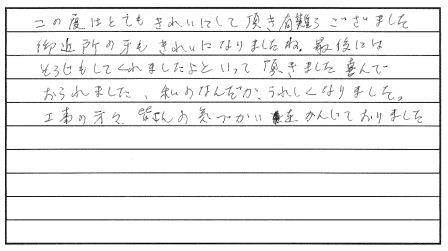 この度はとてもきれいにして頂き有難うございました
御近所の方もきれいになりましたね。最後には
そうじもしてくれましたよといって頂きました喜んで
おられました、私のなんだか、うれしくなりました。
工事の方々 皆さんの気づかいをかんじておりました